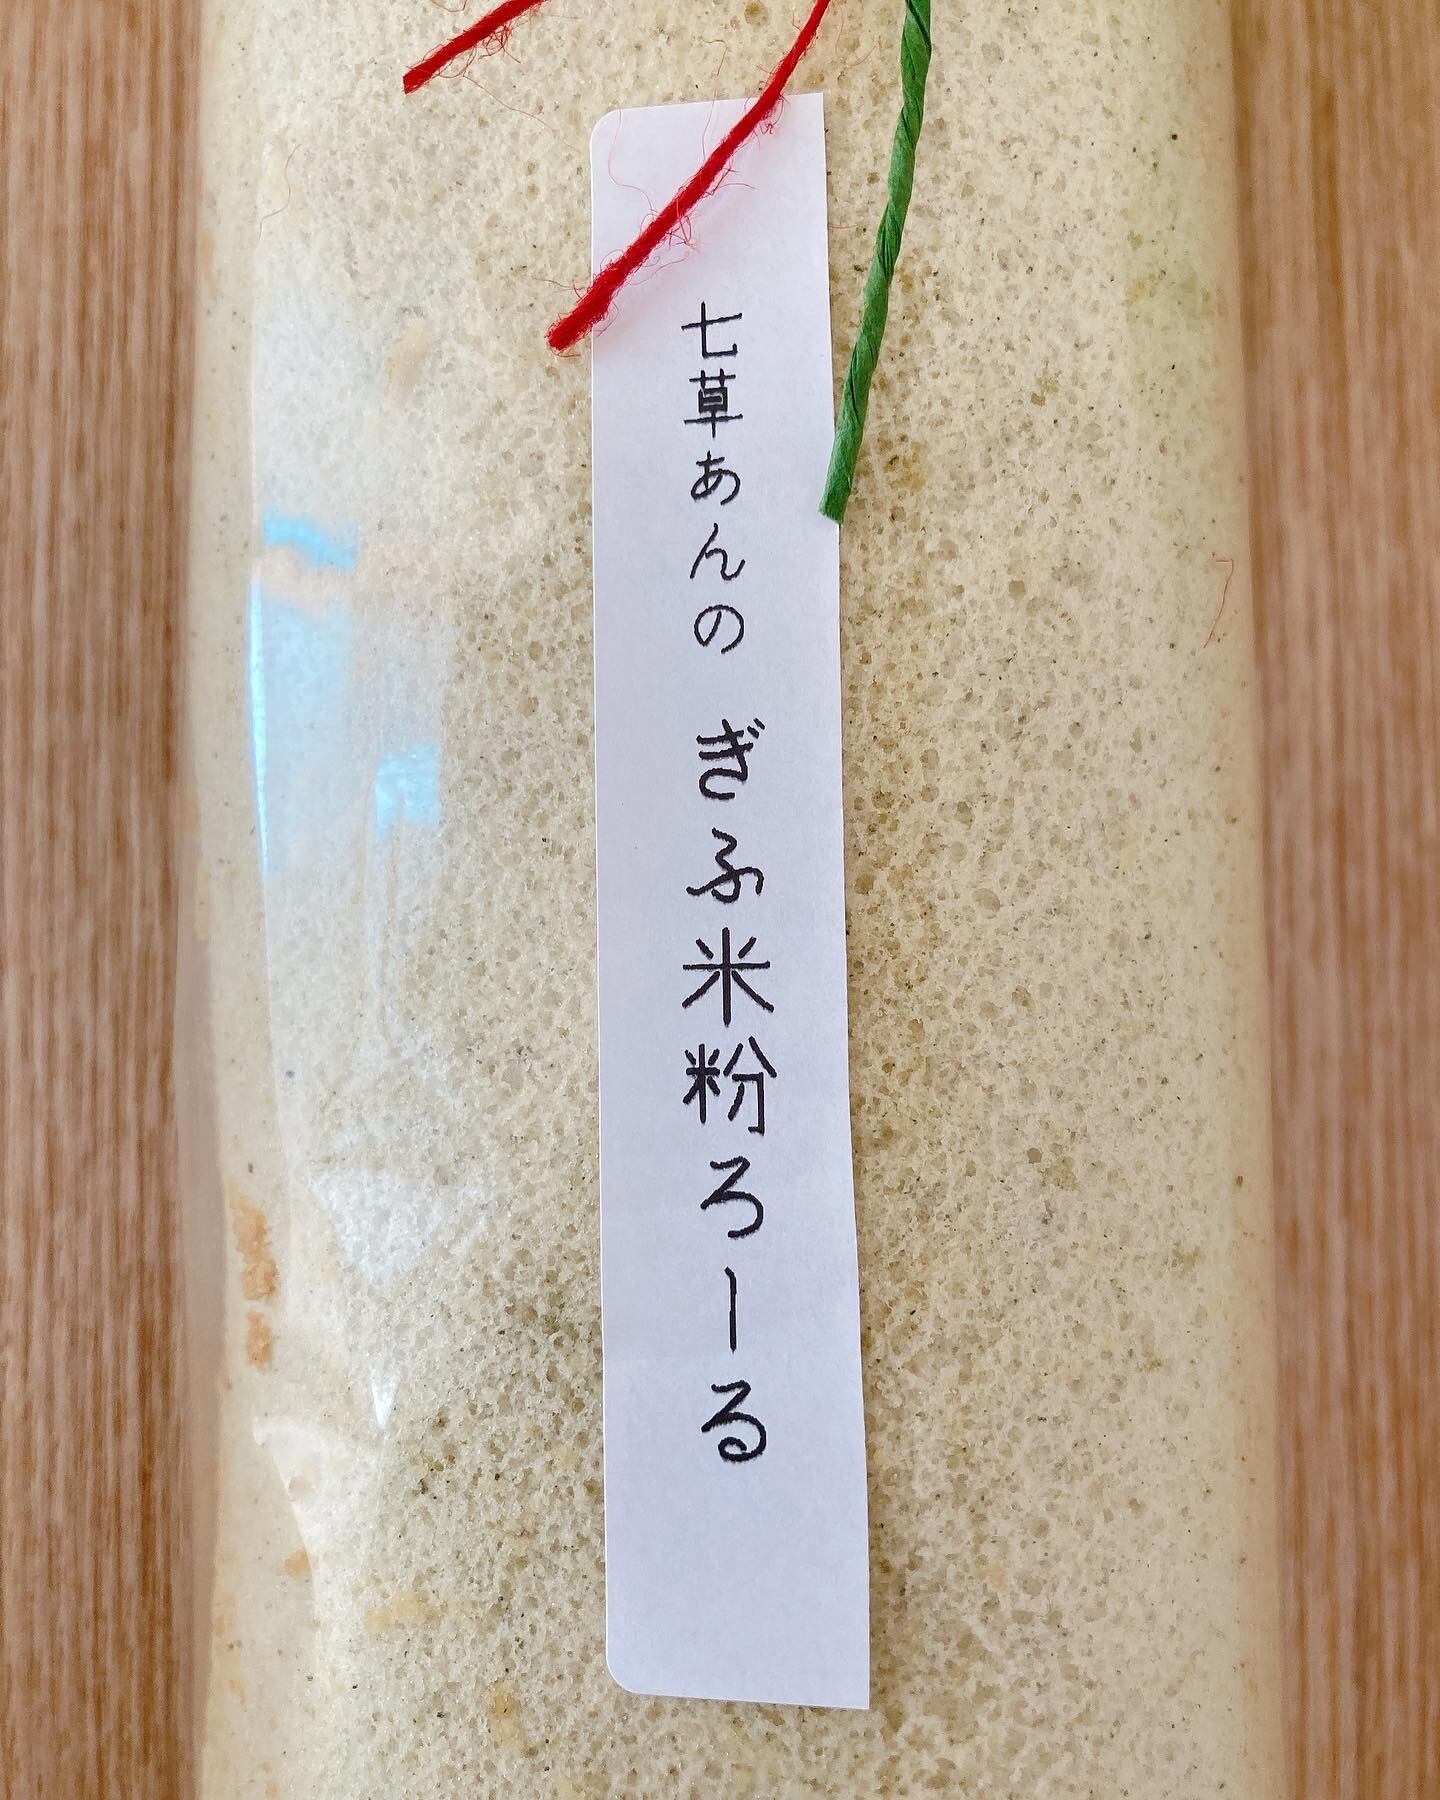 七草あんの ぎふ米粉ろーる